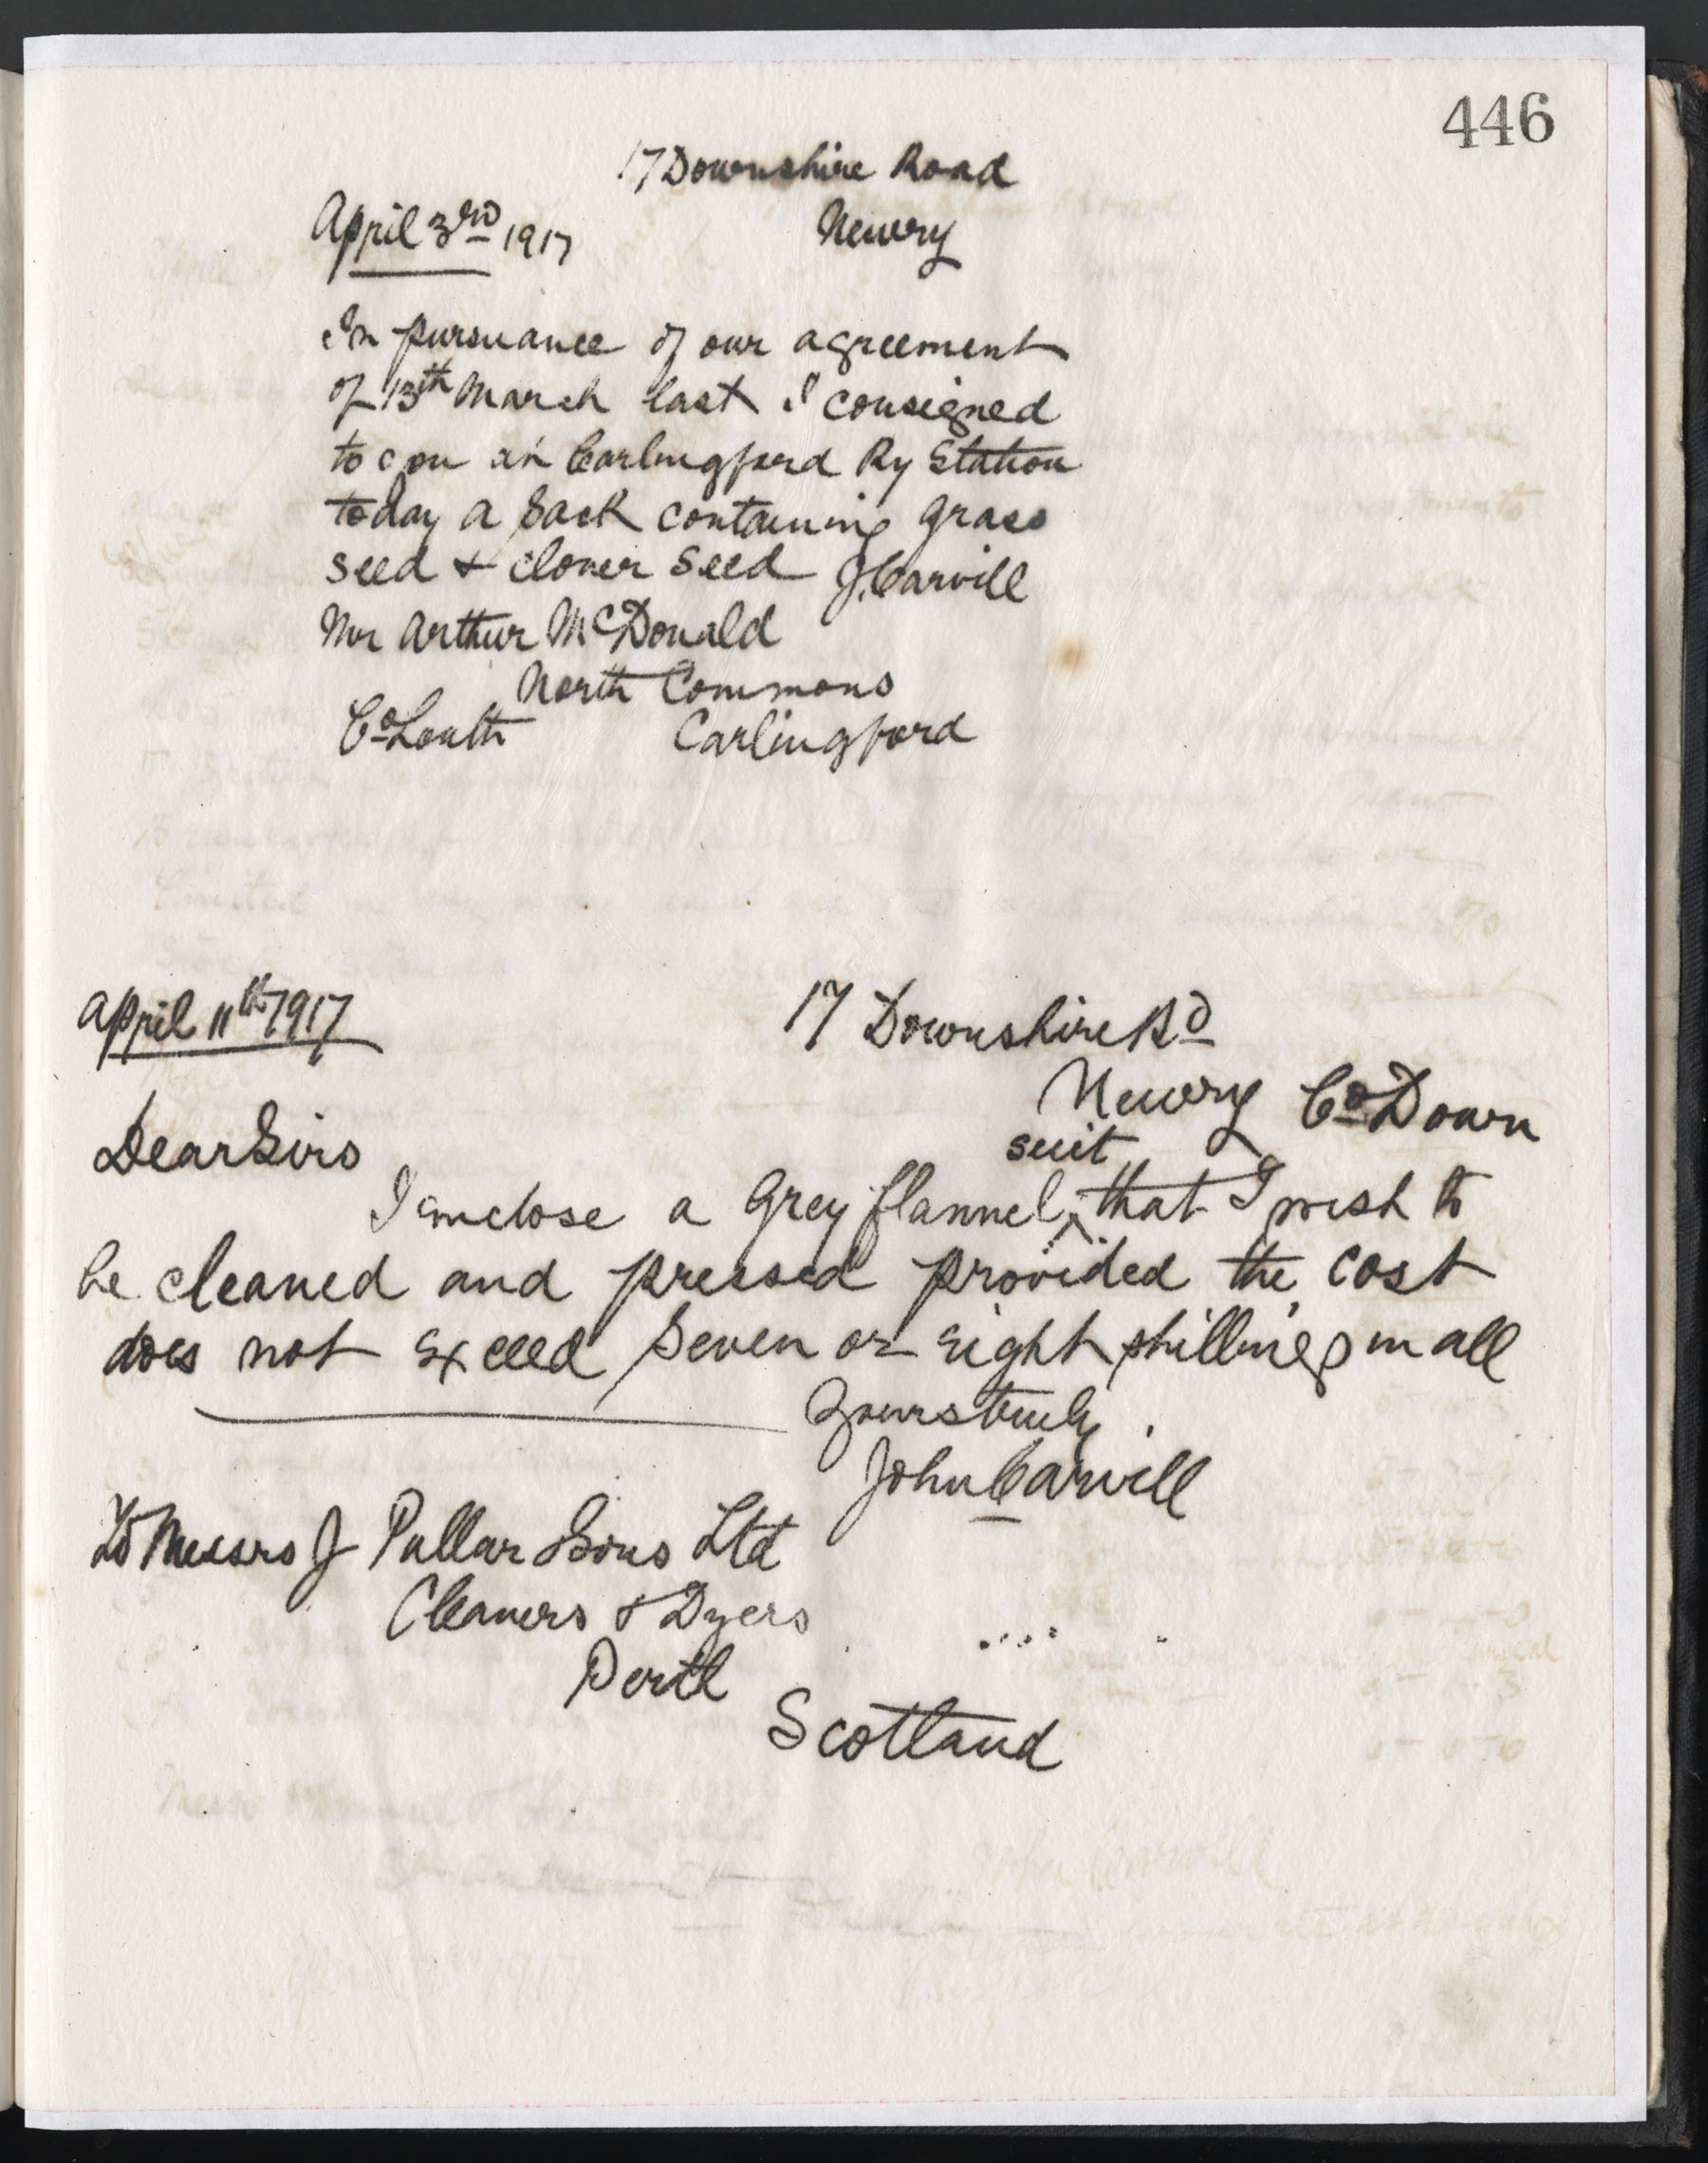 446
17 Downshire Road
April 3rd 1917 Newry
In pursuance of our agreement
of 13th March last I consigned
to you at Carlingford Ry Station
today a sack containing grass
seed & clover seed J. Carvill
Mr Arthur McDonald
North Commons
Co Louth Carlingford
April 11th 1917 17 Downshire Rd
Newry Co Down
Dear Sirs
suit
I enclose a grey flannel ^ that I wish to
be cleaned and pressed provided the cost
does not exceed seven or eight shillings in all
Yours truly
John Carvill
To Messrs J Pullar & Sons Ltd
Cleaners & Dyers
Perth
Scotland